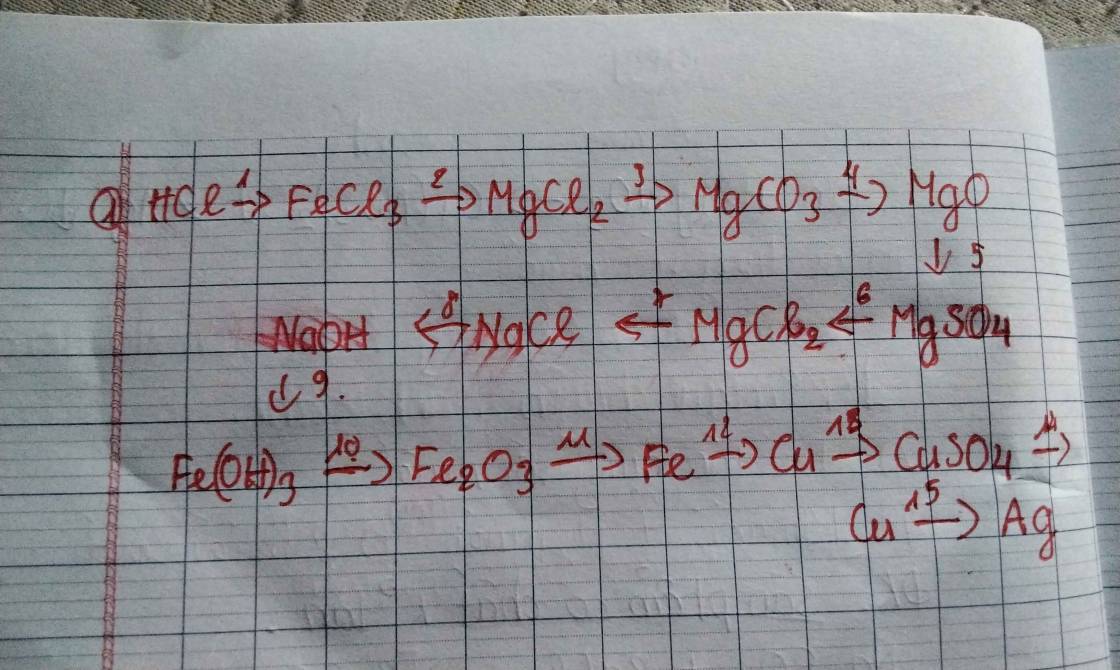 a) HCl 1→ FeCl3 2→ MgCl2 3→ MgCO3 4→ MgO
↓ 5
NaOH ←8 NaCl ←7 MgCl2 ←6 MgSO4
↓ 9.
Fe(OH)3 10→ Fe2O3 11→ Fe 12→ Cu 13→ CuSO4 14→
Cu 15→ Ag